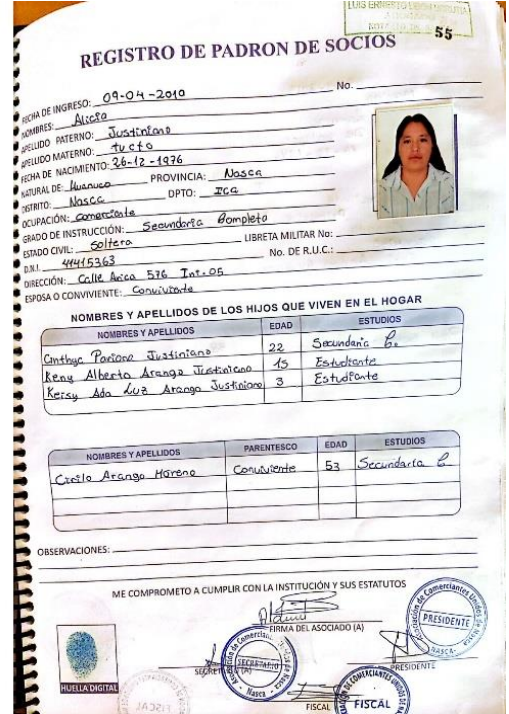 LUIS ERNESTO
55
REGISTRO DE PADRON DE SOCIOS
No.
FECHA DE INGRESO: 09-04-2010
NOMBRES: Alicia
APELLIDO PATERNO: Justiniano
APELLIDO MATERNO: tucto
FECHA DE NACIMIENTO: 26-12-1976
NATURAL DE: Huanuco PROVINCIA: Nasca
DISTRITO: Nasca DPTO: ICA
OCUPACIÓN: comerciante
GRADO DE INSTRUCCIÓN: Secundaria Completa
ESTADO CIVIL: Soltera LIBRETA MILITAR No:
D.N.I. 41415363 No. DE R.U.C.:
DIRECCIÓN: Calle Arica 576 Int-05
ESPOSA O CONVIVIENTE: Conviviente
NOMBRES Y APELLIDOS DE LOS HIJOS QUE VIVEN EN EL HOGAR
NOMBRES Y APELLIDOS EDAD ESTUDIOS
Justiniano 22 Secundaria C.
Keny Alberto Arango Justiniano 15 Estudiante
Keysy Ada Luz Arango Justiniano 3 Estudiante
NOMBRES Y APELLIDOS PARENTESCO EDAD ESTUDIOS
Cirilo Arango Moreno Conviviente 53 Secundaria C
OBSERVACIONES:
ME COMPROMETO A CUMPLIR CON LA INSTITUCIÓN Y SUS ESTATUTOS
FIRMA DEL ASOCIADO (A)
Asociación de Comerciantes Unidos de Nasca
PRESIDENTE
PRESIDENTE
SECRETARIO
Nasca
HUELLA DIGITAL
FISCAL
FISCAL